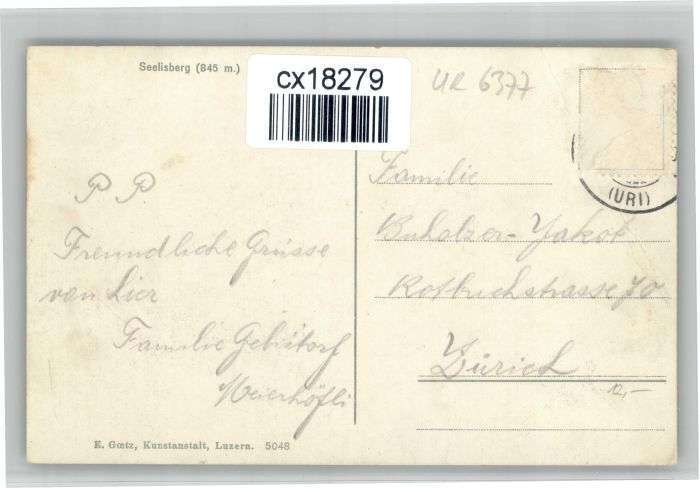 Seelisberg (845 m.)
cx18279
UR 6377
P P
Freundliche Grüsse
von hier
Familie Gebistorf
Meierhöfli
Familie
Buholzer-Jakob
Rotbuchstrasse 70
Zürich
12,-
(URI)
E. Gœtz, Kunstanstalt, Luzern. 5048